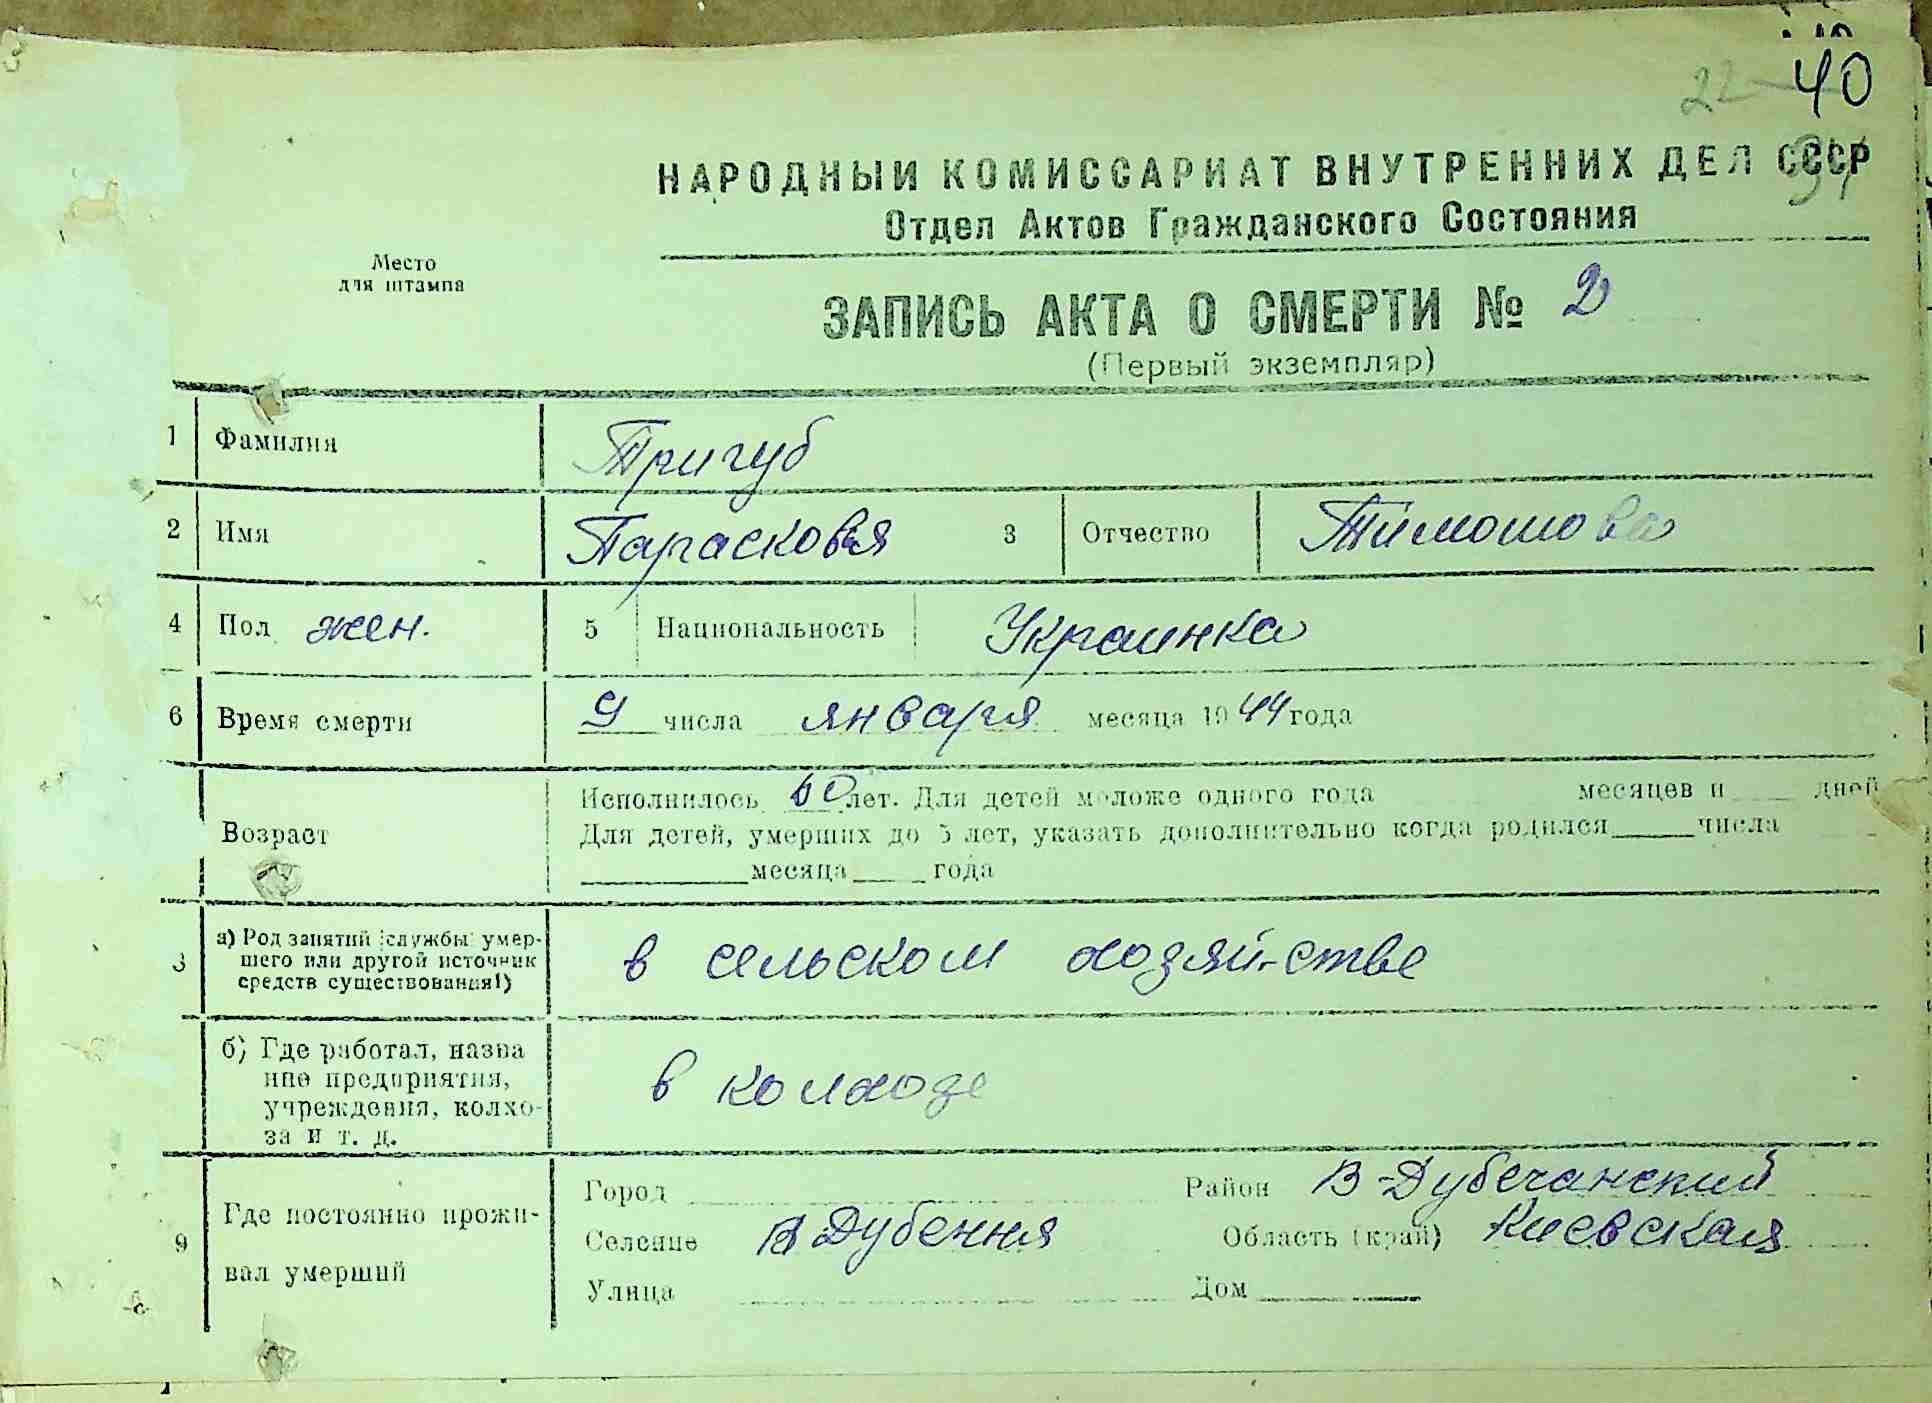 40
22
НАРОДНЫЙ КОМИССАРИАТ ВНУТРЕННИХ ДЕЛ СССР
Отдел Актов Гражданского Состояния
Место
для штампа
ЗАПИСЬ АКТА О СМЕРТИ № 2
(Первый экземпляр)
1 Фамилия Тригуб
2 Имя Парасковья 3 Отчество Тимошова
4 Пол жен. 5 Национальность Украинка
6 Время смерти 9 числа января месяца 1944 года
Возраст
Исполнилось 60 лет. Для детей моложе одного года месяцев и дней
Для детей, умерших до 5 лет, указать дополнительно когда родился числа
месяца года
а) Род занятий (службы) умер-
шего или другой источник
средств существования1)
в сельском хозяйстве
б) Где работал, назва
ние предприятия,
учреждения, колхо-
за и т. д.
в колхозе
9 Где постоянно прожи-
вал умерший
Город Район В-Дубечанский
Селение В Дубечня Область (край) Киевская
Улица Дом